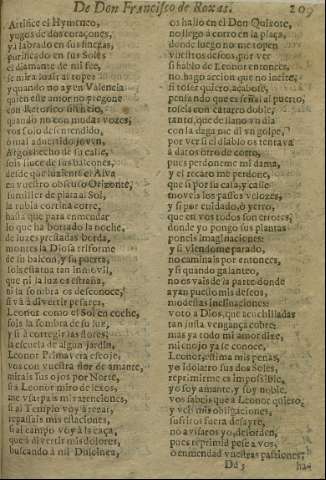 De Don Francisco de Roxas. 209
Artifice el Hymeneo,
yugos de dos coraçones,
ya labrado en sus fuegas,
purificado en sus Soles
el diamante de mi fee,
se mira
y quando no ay en Valencia
quien este amor no pregone
con Retorico silencio,
quando no con mudas vozes,
vos solo desentendido,
ò mal advertido joven,
Argos hecho de su calle,
sois lince de sus balcones,
desde que luziente el Alva
en vuestro obscuro Orizonte,
sumiller de plata al Sol,
la rubia cortina corre,
hasta que para enmendar
lo que ha borrado la noche,
de luzes prestadas borda,
montes la Diosa triforme
de su balcon, y su puerta,
sois estatua tan inmovil,
que ni la luz os estraña,
ni la sombra os desconoce,
si và à divertir pesares,
Leonor como el Sol en coche,
sois la sombra de su luz,
y si à corregir las flores,
la escuela de algun jardin,
Leonor Primavera escoje,
vos con vuestra flor de amante,
mirais sus ojos por Norte,
si a Leonor miro de lexos,
me usurpais mis atenciones,
si al Templo voy à rezar,
repassais mis estaciones,
si al campo voy à la caça,
que à divertir mis dolores,
buscando à mi Dulcinea,
os hallo en el Don Quixote,
no llego à corro en la plaça,
donde luego no me topen
vuestros deseos, por ver
si hablo de Leonor entonces,
no hago accion que no incite,
si toser quiero, açaboses,
pensando que es señal al puerto,
toseis con catarro doble,
tanto, que de llano un dia
con la daga me dì un golpe,
por ver si el diablo os tentava
à daros otro de corto,
pues perdoneme mi dama,
y el recato me perdone,
que si por su casa, y calle
moveis los passos velozes,
y si por cuidado, ò yerro,
que en vos todos son errores,
donde yo pongo sus plantas
poneis imaginaciones,
y si viendome parado,
no caminais por entonces,
y si quando galanteo,
no os vais de la parte donde
ayan puesto mis deseos,
modestas inclinaciones:
voto à Dios, que acuchilladas
tan justa vengança cobre;
mas ya todo mi amor dize,
mi enojo ya se conoce,
Leonor, estima mis penas,
yo Idolatro sus dos Soles,
reprimirme es impossible,
yo soy amante, y soy noble,
vos sabeis que a Leonor quiero,
y veis mis obligaciones,
sufriros fuera desayre,
no avisaros yo, desorden,
pues reprimid pese à vos,
o enmendad vuestras passiones;
Dd 3 haz